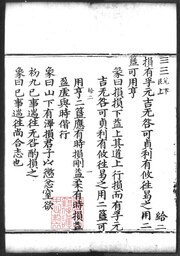 損有孚元吉无咎可貞利有攸往曷之用二
簋可用享
彖曰損損下益上其道上行損而有孚元
吉无咎可貞利有攸往曷之用二簋可
用享二簋應有時損剛益柔有時損益
盈虛與時偕行
象曰山下有澤損君子以懲忿窒欲
初九已事遄往无咎酌損之
象曰已事遄往尚合志也